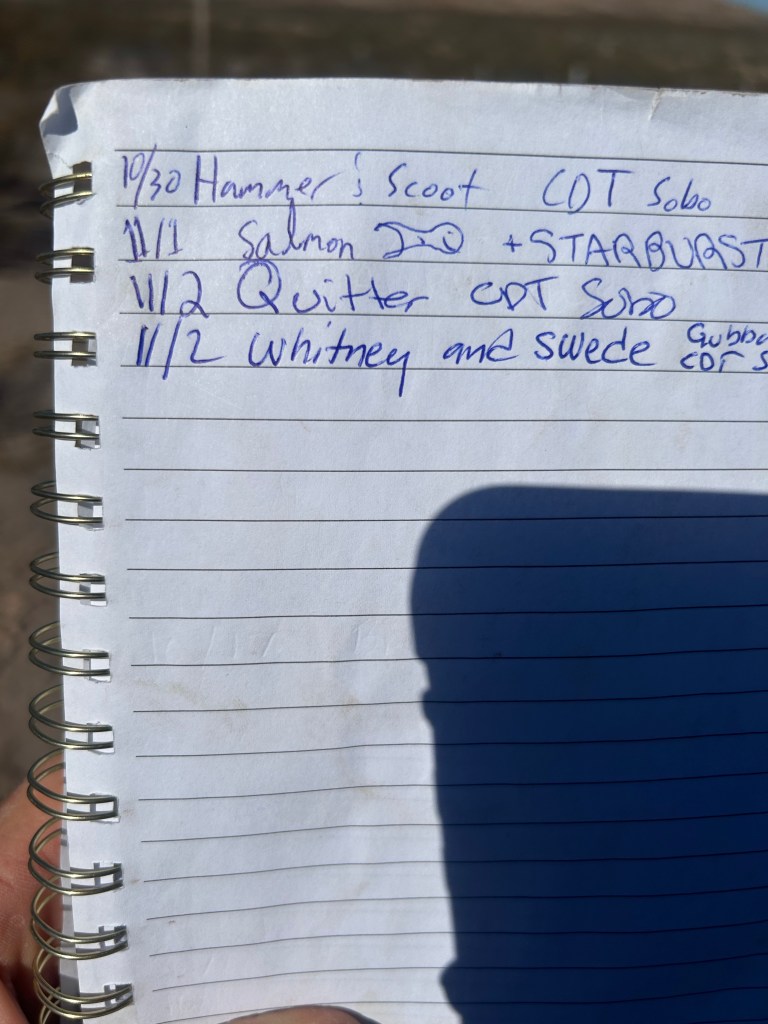 10/30 Hammer & Scoot CDT Sobo
11/1 Salmon + STARBURST
11/2 Quitter CDT Sobo
11/2 Whitney and Swede
CDT S